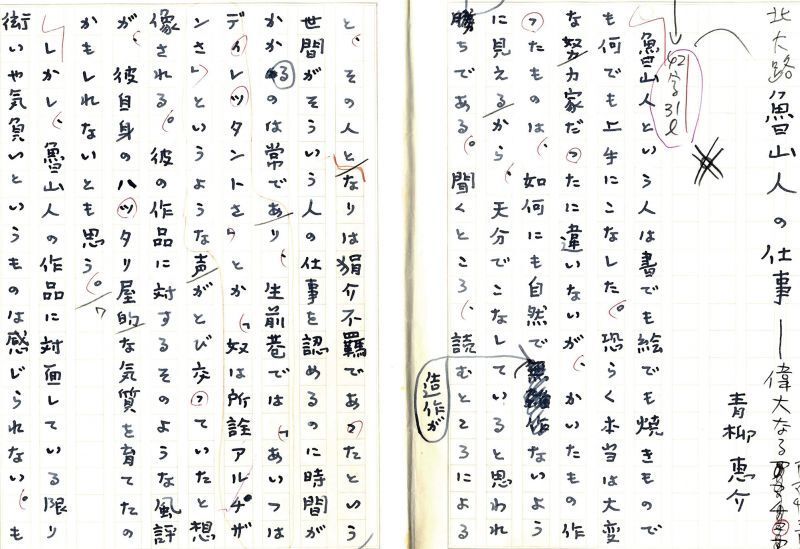 北大路魯山人の仕事―偉大なる
青柳恵介
42字31l
魯山人という人は書でも絵でも焼きもので
も何でも上手にこなした。恐らく本当は大変
な努力家だったに違いないが、かいたもの作
ったものは、如何にも自然で造作がないよう
に見えるから、天分でこなしていると思われ
勝ちである。聞くところ、読むところによる
と、その人となりは狷介不羈であったという
世間がそういう人の仕事を認めるのに時間が
かかるのは常であり、生前巷では「あいつは
ディレッタントさ」とか「奴は所詮アルチザ
ンさ」というような声がとび交っていたと想
像される。彼の作品に対するそのような風評
が、彼自身のハッタリ屋的な気質を育てたの
かもしれないとも思う。
しかし、魯山人の作品に対面している限り
衒いや気負いというものは感じられない。も